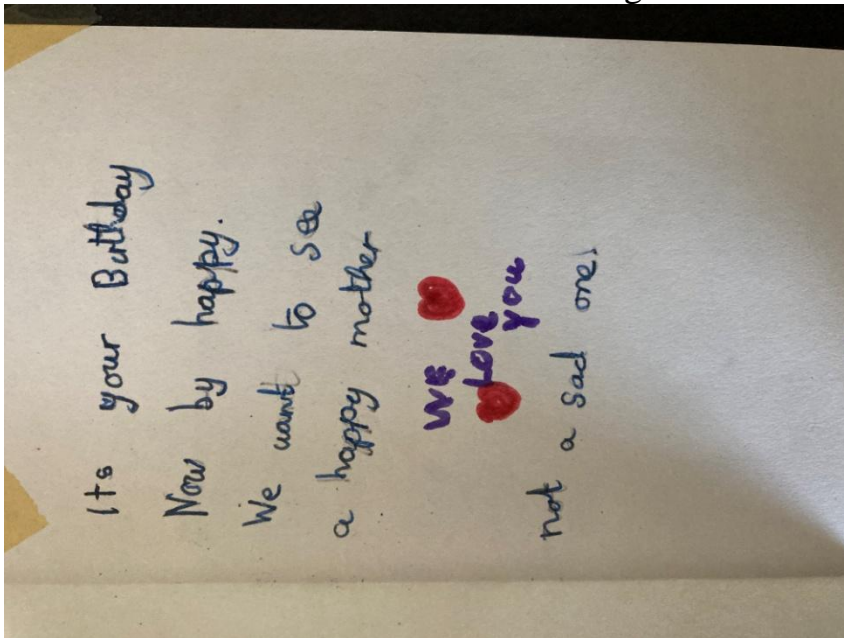 Its your Birthday
Now by happy.
We want to see
a happy mother
WE
Love
you
not a sad one!